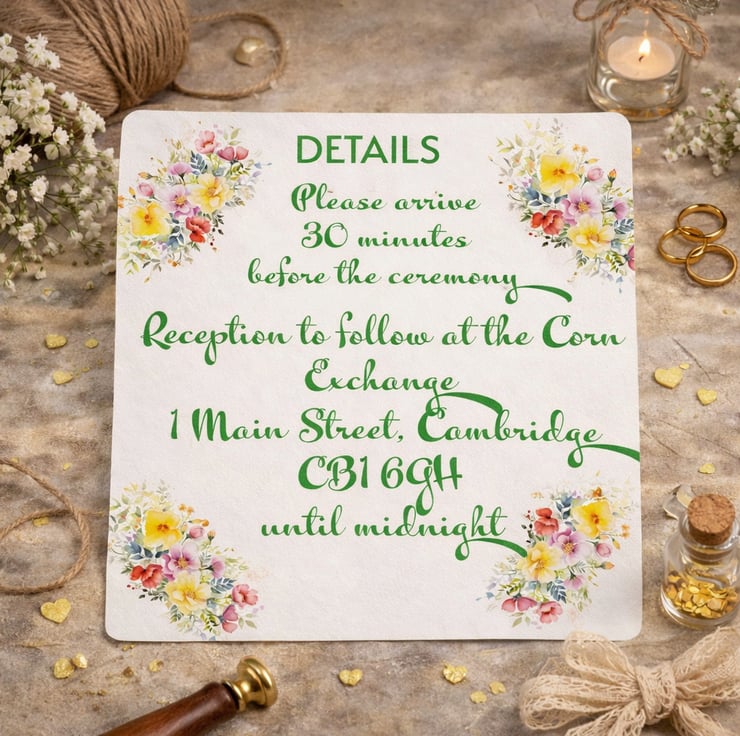 DETAILS
Please arrive
30 minutes
before the ceremony
Reception to follow at the Corn
Exchange
1 Main Street, Cambridge
CB1 6GH
until midnight